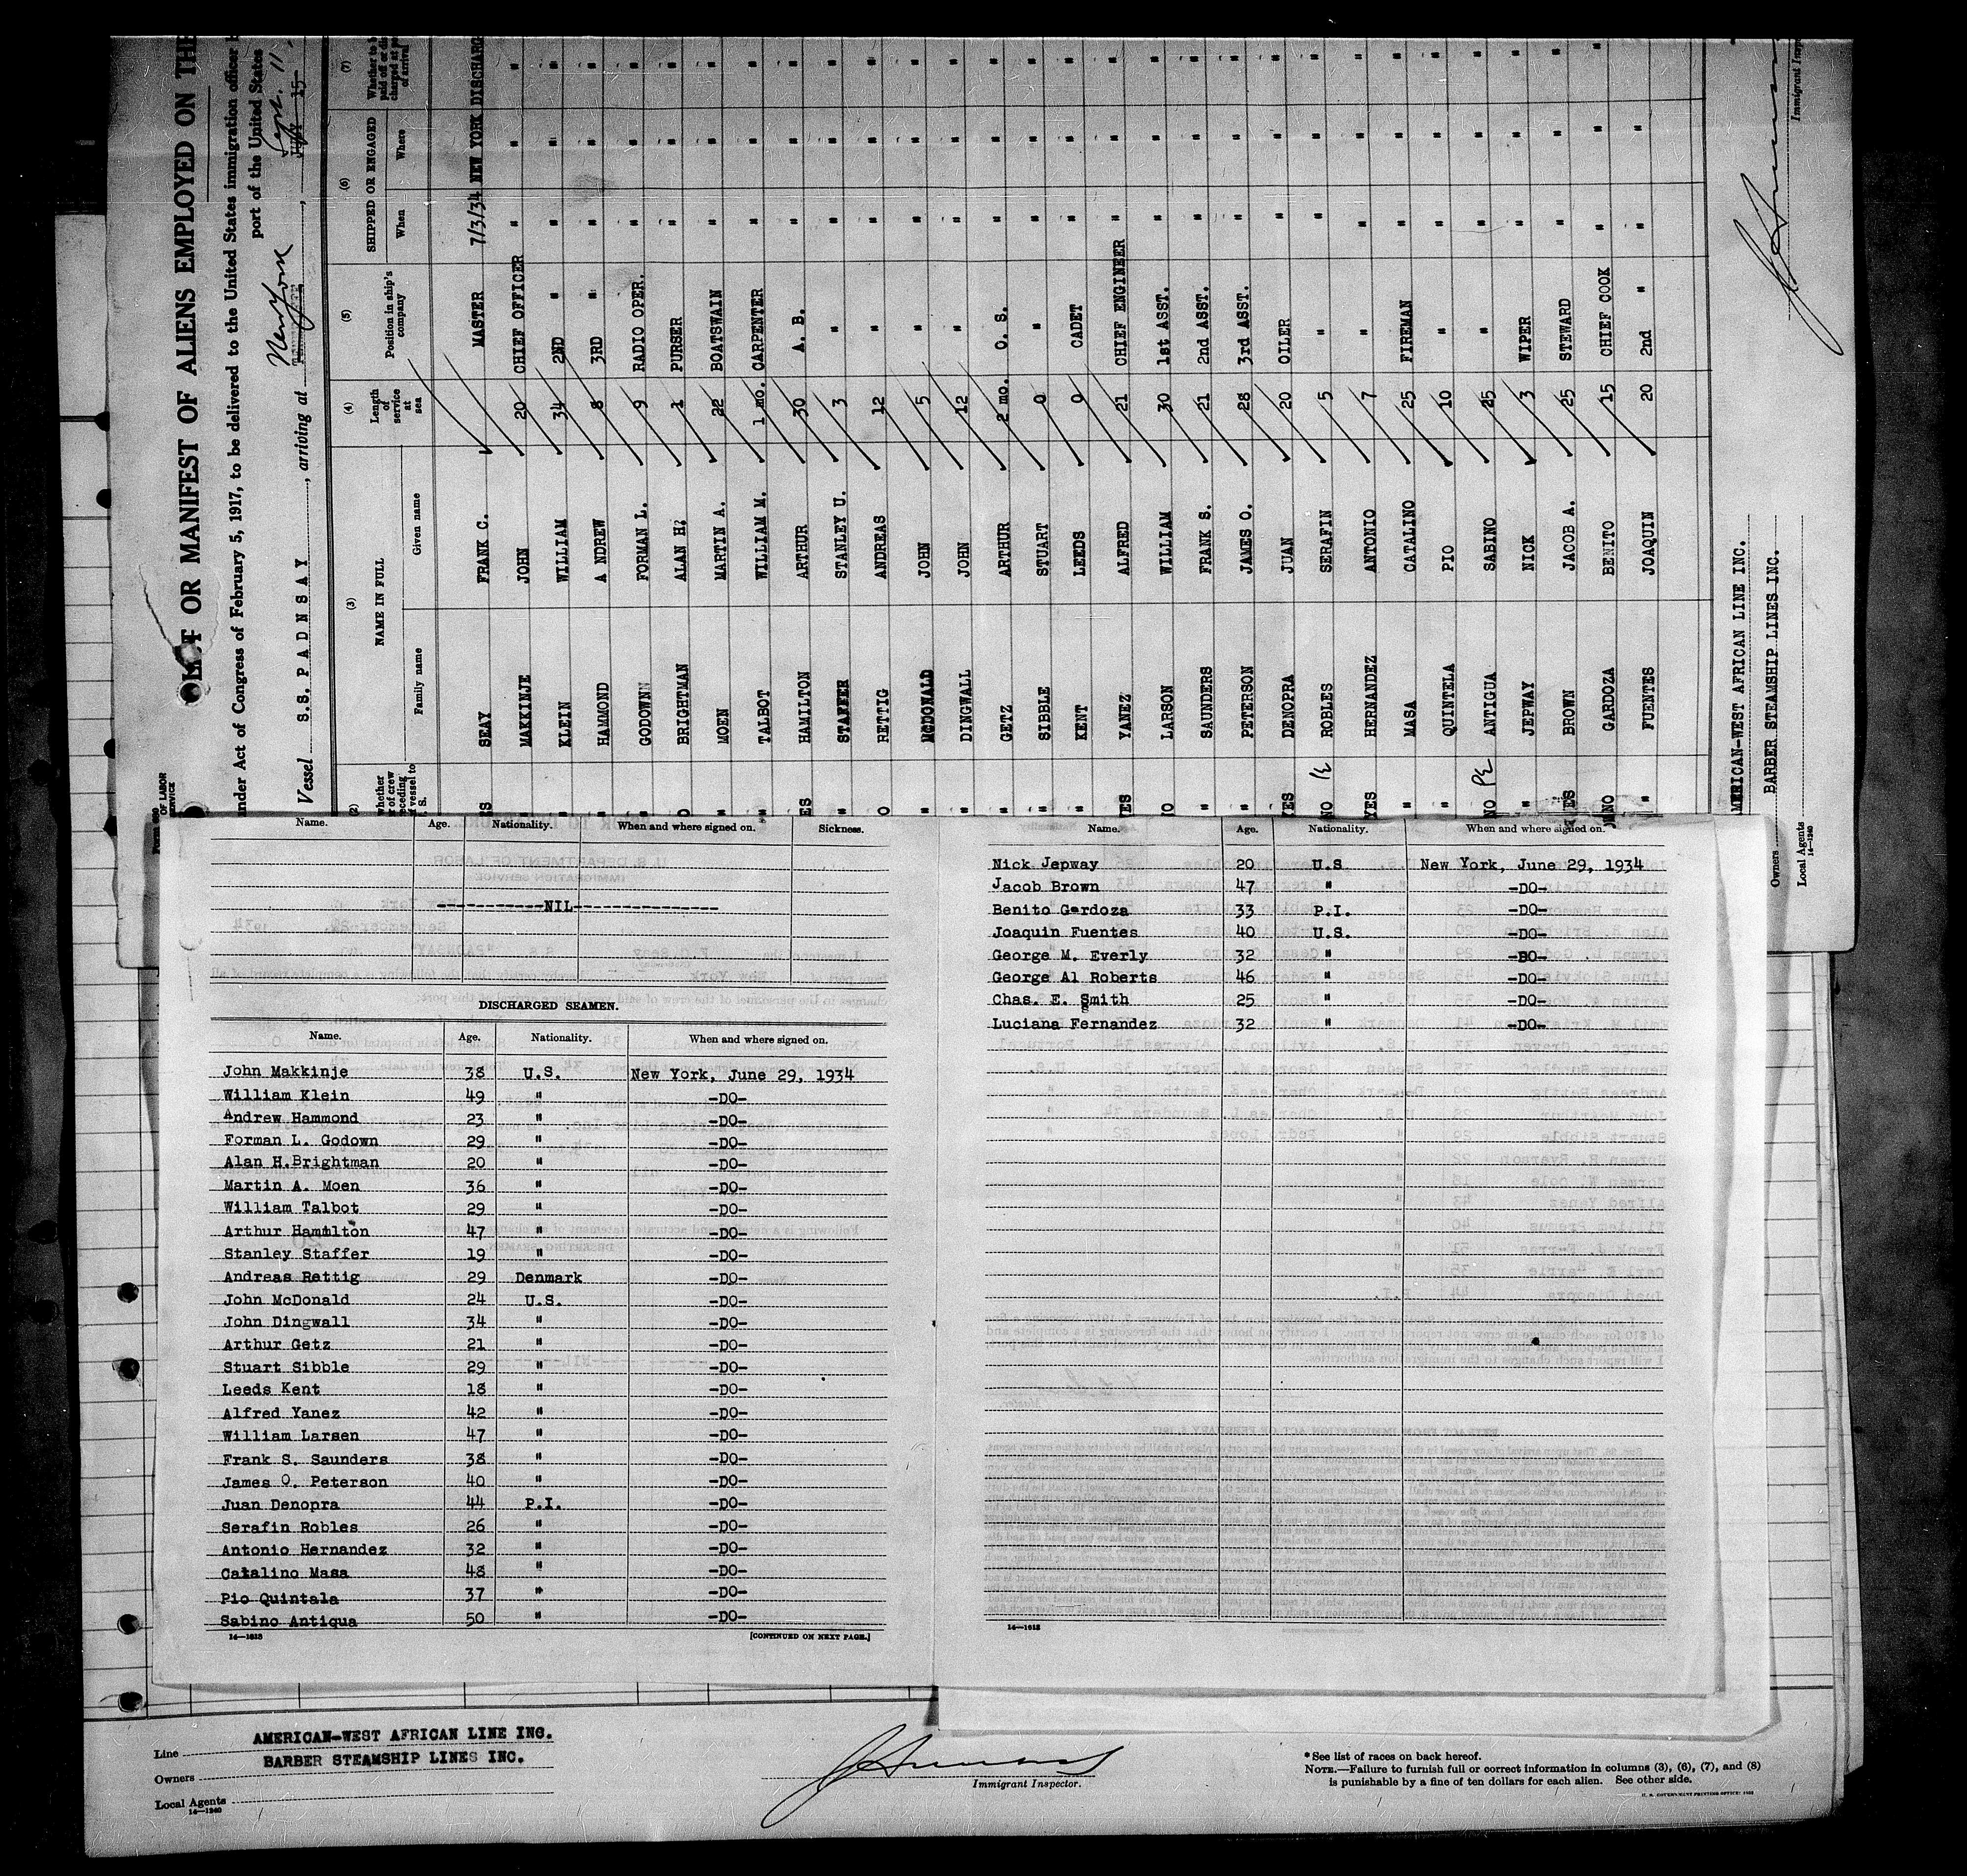 LIST OR MANIFEST OF ALIENS EMPLOYED ON THE
under Act of Congress of February 5, 1917, to be delivered to the United States immigration officer
port of the United States
Vessel S.S. PADNSAY, arriving at New York, Sept. 11,
(2) (3) (4) (5) (6) (7)
NAME IN FULL
Family name Given name
Length of service at sea
Position in ship's company
SHIPPED OR ENGAGED
When Where
Whether to be paid off or discharged at port of arrival
SEAY FRANK C. MASTER 7/3/34 NEW YORK DISCHARG
MAKKINJE JOHN 20 CHIEF OFFICER " " "
KLEIN WILLIAM 34 2ND " " " "
HAMMOND A NDREW 8 3RD " " " "
GODOWN FORMAN L. 9 RADIO OPER. " " "
BRIGHTMAN ALAN H? 1 PURSER " " "
MOEN MARTIN A. 22 BOATSWAIN " " "
TALBOT WILLIAM M. 1 mo. CARPENTER " " "
HAMILTON ARTHUR 30 A. B. " " "
STAFFER STANLEY U. 3 " " " "
RETTIG ANDREAS 12 " " " "
MCDONALD JOHN 5 " " " "
DINGWALL JOHN 12 " " " "
GETZ ARTHUR 2 mo. O. S. " " "
SIBBLE STUART 0 " " " "
KENT LEEDS 0 CADET " " "
YES YANEZ ALFRED 21 CHIEF ENGINEER " " "
LARSON WILLIAM 30 1st ASST. " " "
" SAUNDERS FRANK S. 21 2nd ASST. " " "
" PETERSON JAMES O. 28 3rd ASST. " " "
YES DENOPRA JUAN 20 OILER " " "
NO ROBLES SERAFIN 5 " " " "
YES HERNANDEZ ANTONIO 7 " " " "
" MASA CATALINO 25 FIREMAN " " "
" QUINTELA PIO 10 " " " "
NO ANTIGUA SABINO 25 " " " "
" JEPWAY NICK 3 WIPER " " "
YES BROWN JACOB A. 25 STEWARD " " "
NO GARDOZA BENITO 15 CHIEF COOK " " "
" FUENTES JOAQUIN 20 2nd " " " "
AMERICAN-WEST AFRICAN LINE INC.
Owners BARBER STEAMSHIP LINES INC.
Local Agents
14—1240
Immigrant Insp
Name. Age. Nationality. When and where signed on. Sickness.
-----------NIL---------------
DISCHARGED SEAMEN.
Name. Age. Nationality. When and where signed on.
John Makkinje 38 U.S. New York, June 29, 1934
William Klein 49 " -DO-
Andrew Hammond 23 " -DO-
Forman L. Godown 29 " -DO-
Alan H.Brightman 20 " -DO-
Martin A. Moen 36 " -DO-
William Talbot 29 " -DO-
Arthur Hamilton 47 " -DO-
Stanley Staffer 19 " -DO-
Andreas Rettig 29 Denmark -DO-
John McDonald 24 U.S. -DO-
John Dingwall 34 " -DO-
Arthur Getz 21 " -DO-
Stuart Sibble 29 " -DO-
Leeds Kent 18 " -DO-
Alfred Yanez 42 " -DO-
William Larsen 47 " -DO-
Frank S. Saunders 38 " -DO-
James O. Peterson 40 " -DO-
Juan Denopra 44 P.I. -DO-
Serafin Robles 26 " -DO-
Antonio Hernandez 32 " -DO-
Catalino Masa 48 " -DO-
Pio Quintala 37 " -DO-
Sabino Antiqua 50 " -DO-
14—1613 [CONTINUED ON NEXT PAGE.]
Name. Age. Nationality. When and where signed on.
Nick Jepway 20 U.S New York, June 29, 1934
Jacob Brown 47 " -DO-
Benito Gardoza 33 P.I. -DO-
Joaquin Fuentes 40 U.S. -DO-
George M. Everly 32 " -DO-
George Al Roberts 46 " -DO-
Chas. E. Smith 25 " -DO-
Luciana Fernandez 32 " -DO-
14—1613
Line AMERICAN-WEST AFRICAN LINE INC.
Owners BARBER STEAMSHIP LINES INC.
Local Agents
14—1240
Immigrant Inspector.
*See list of races on back hereof.
NOTE.—Failure to furnish full or correct information in columns (3), (6), (7), and (8)
is punishable by a fine of ten dollars for each alien. See other side.